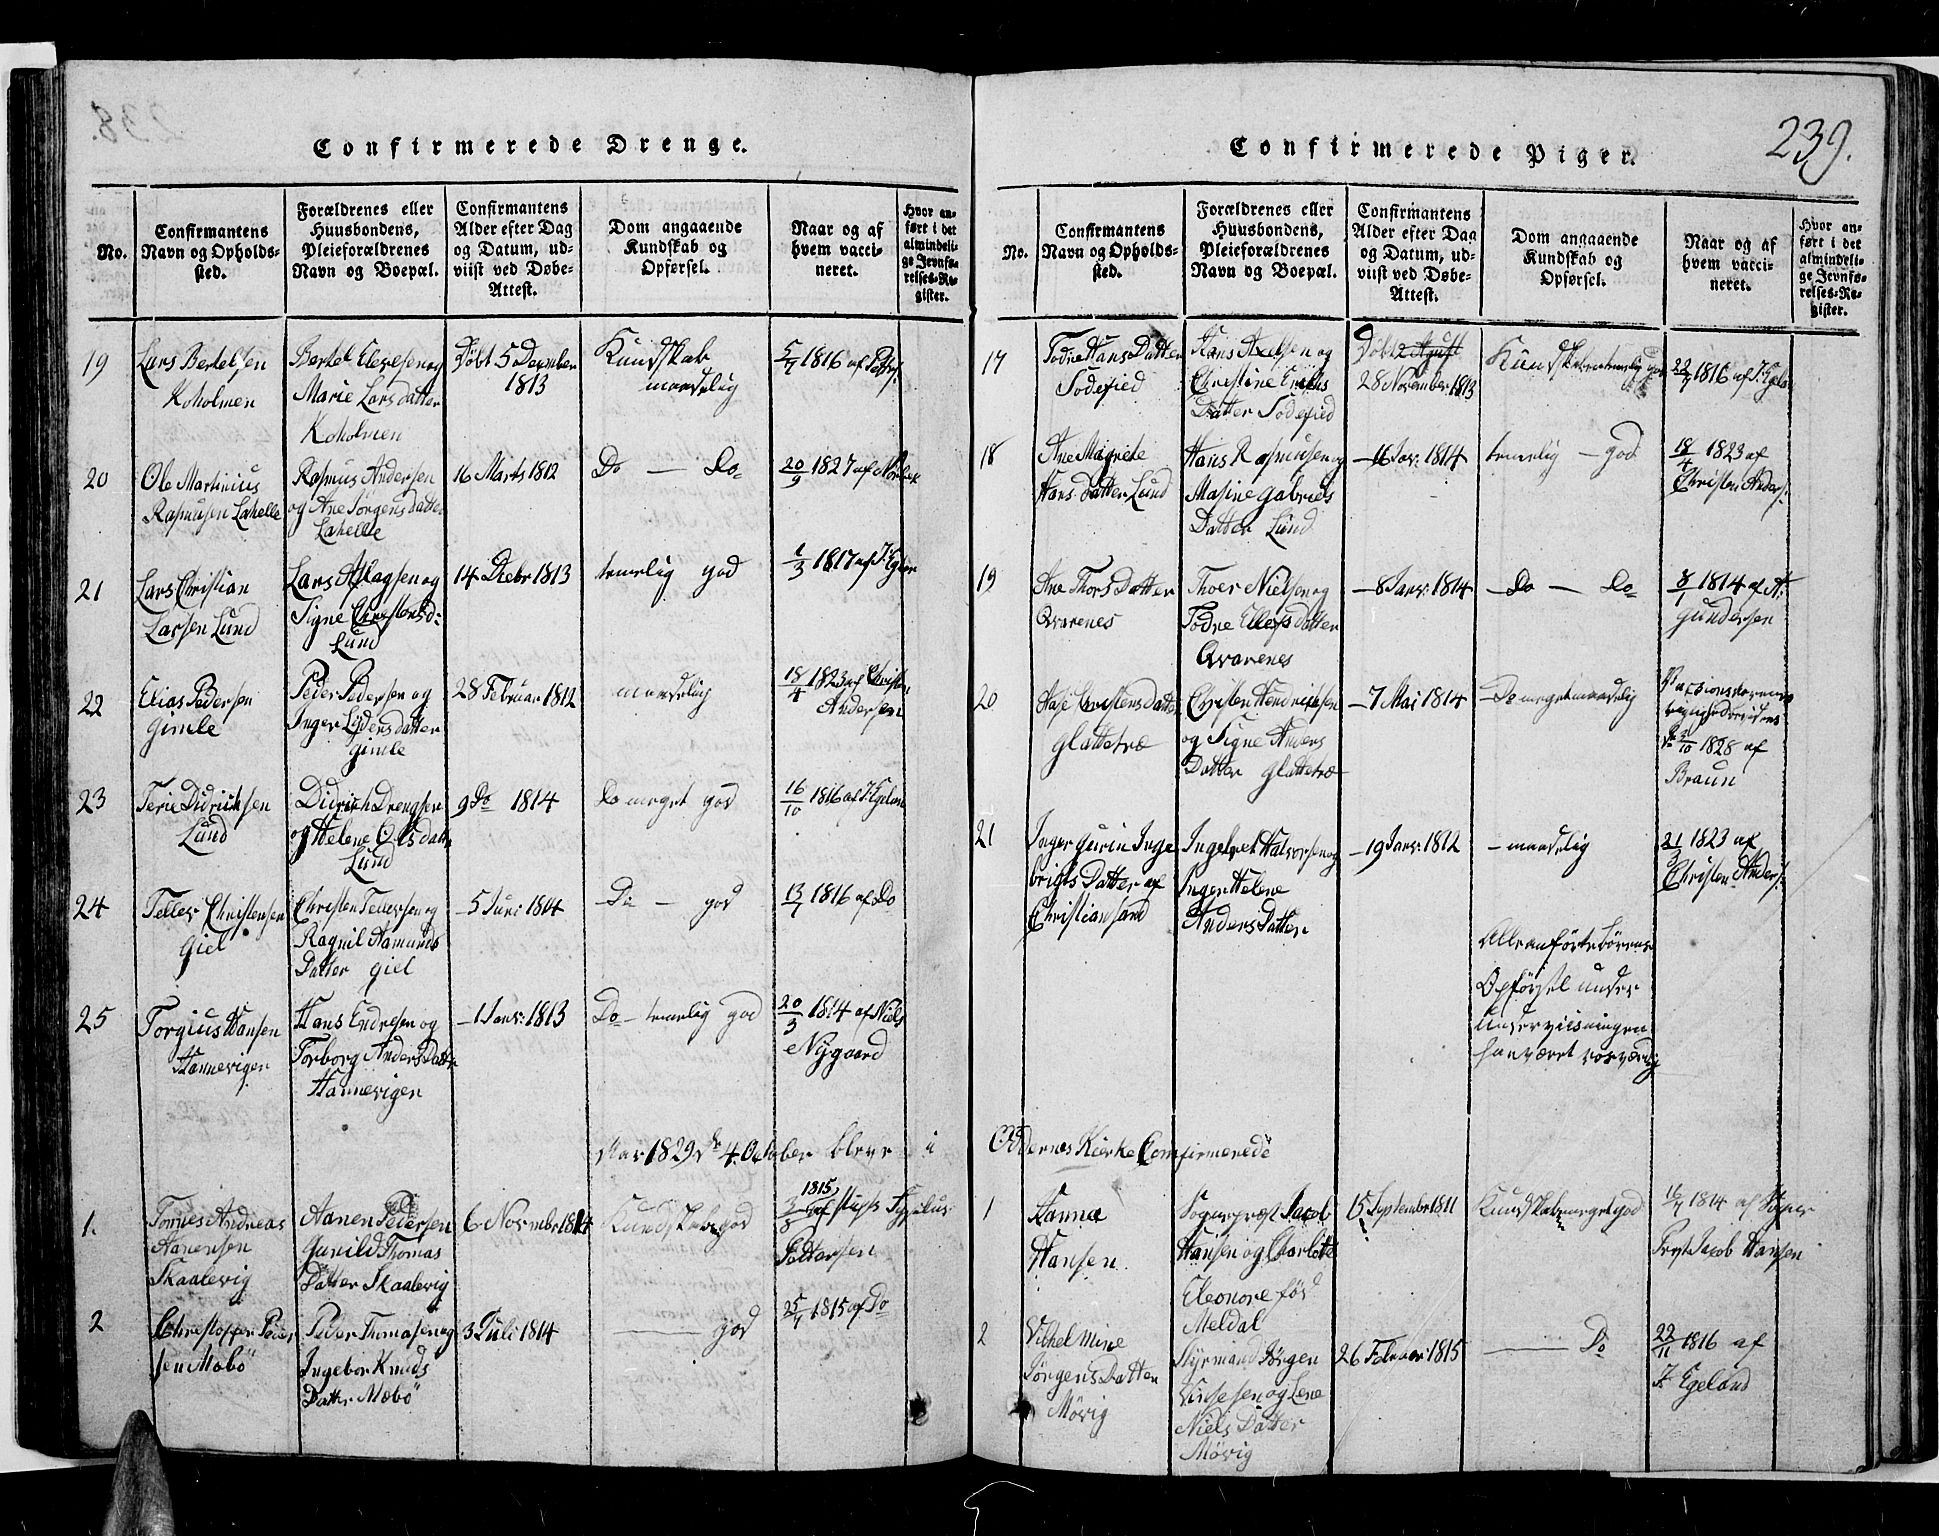 Confirmerede Drenge.
No.
Confirmantens
Navn og Opholds-
sted.
Forældrenes eller
Huusbondens,
Pleieforældrenes
Navn og Boepæl.
Confirmantens
Alder efter Dag
og Datum, ud-
viist ved Døbe-
Attest.
Dom angaaende
Kundskab og
Opførsel.
Naar og af
hvem vacci-
neret.
Hvor an-
ført i det
almindeli-
ge Jevnfø-
relses-Re-
gister.
19
Lars Bertelsen
Koholmen
Bertel Elevesen og
Marie Lars datter
Koholmen
Døbt 5 December
1813
Kundskab
maadelig
5/7 1816 af
20
Ole Martinius
Rasmusen Lahelle
Rasmus Andersen
og Ane Jørgens datter
Lahelle
16 Marts 1812
Do — Do
20/9 1827 af
21
Lars Christian
Larsen Lund
Lars Aslagsen og
Signe Christensd:
Lund
14 Decbr 1813
temelig god
1/3 1817 af
22
Elias Pedersen
Gimle
Peder Pedersen og
Inger Lydersdatter
Gimle
28 Februar 1812
maadelig
18/4 1823 af Christen
Andersen
23
Terie Didrichsen
Lund
Didrich Drengsen
og Helene Olsdatter
Lund
9 Do 1814
Do meget god
16/10 1816 af J. Egeland
24
Tellev Christensen
Giel
Christen Tellevsen og
Ragnil Aamunds
Datter Giel
- 5 Juni 1814
Do — god
13/7 1816 af Do
25
Torgius Hansen
Hannevigen
Hans Endresen og
Torborg Anders Datter
Hannevigen
- 1 Janv: 1813
Do - temelig god
20/3 1814 af Niels
Nygaard
Aar 1829 d 4 October bleve i
1.
Tornes Andreas
Aanensen
Skaalevig
Aanen Pedersen
Gunild Thomas
Datter Skaalevig
6 Novembr 1814
Kundskab god
3/8 1815 af
Pettersen
2
Christopher Peder
sen Mæbö
Peder Thomasen og
Ingebor Knuds
Datter Mæbö
3 Juli 1814
——— god
25/7 1815 af Do
239.
Confirmerede Piger.
No.
Confirmantens
Navn og Opholds-
sted.
Forældrenes eller
Huusbondens,
Pleieforældrenes
Navn og Boepæl.
Confirmantens
Alder efter Dag
og Datum, ud-
viist ved Døbe-
Attest.
Dom angaaende
Kundskab og
Opførsel.
Naar og af
hvem vacci-
neret.
Hvor an-
ført i det
almindeli-
ge Jevnfø-
relses-Re-
gister.
17
Todne Hans Datter
Todefied
Hans Axelsen og
Christine Eriks
Datter Todefied
Døbt
28 November 1813
Kundskab temelig god
22/7 1816 af J: Egeland
18
Ane Magrete
Hans Datter Lund
Hans Rasmusen og
Masine Gabriels
Datter Lund
Jan: 1814
temelig — god
18/4 1823 af
Christen Anders:
19
Ane Thors Datter
Qvarenes
Thoer Nielsen og
Todne Ellefs Datter
Qvarenes
- 8 Janv: 1814
- Do — Do
8/1 1814 af A:
Gundersen
20
Aase Christens Datter
Glattetræ
Christen Hendrichsen
og Signe Anders
Datter Glattetræ
- 7 Mai 1814
- Do meget maadelig
1828 af
Braun
21
Inger Gurin Inge
brigts Datter af
Christiansand
Ingebret Halvorsen og
Inger Helene
Anders Datter
- 19 Janv: 1812
- maadelig
21/3 1823 af
Christen Anders:
Alle anførte Børns
Opførsel under
Underviisningen
har været roesværdig
Oddernes Kierke Confirmerede
1
Hanna
Hansen
Sogneprest Jacob
Hansen og Charlotte
Eleonore fød
Meldal
15 September 1811
Kundskab meget god
16/7 1814 af Sogne
Prest Jacob Hansen
2
Vilhelmine
Jørgens Datter
Møvig
Styrmand Jørgen
og Lene
Niels Datter
Møvig
26 Februar 1815
——— Do
22/11 1816 af
J. Egeland